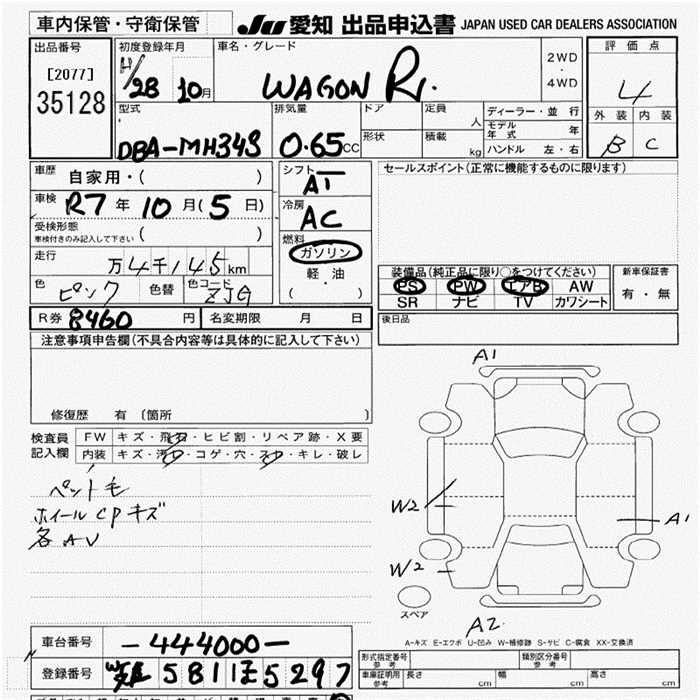 車内保管・守衛保管
JU 愛知 出品申込書 JAPAN USED CAR DEALERS ASSOCIATION
出品番号 [2077] 35128
初度登録年月 H/28 10月
車名・グレード WAGON R
2WD
・
4WD
評価点 4
外装 B 内装 C
型式 DBA-MH34S
排気量 0.65CC
ドア
形状
定員 人
積載 kg
ディーラー・並行
モデル年式 年
ハンドル 左・右
車歴 自家用・( )
車検 R7年10月(5日)
受検形態
車検付きのみ記入して下さい ( )
走行 万4千145km
色 ピンク 色替 色コード ZJG
シフト AT
冷房 AC
燃料
ガソリン
軽・油
( )
セールスポイント(正常に機能するものに限ります)
装備品(純正品に限り○をつけてください)
PS PW エアB AW
SR ナビ TV カワシート
新車保証書
有・無
R券 8460円 名変期限 月 日
後日品
注意事項申告欄(不具合内容等は具体的に記入して下さい)
修復歴 有(箇所 )
検査員記入欄
FW キズ・飛石・ヒビ割・リペア跡・X要
内装 キズ・汚れ・コゲ・穴・スレ・キレ・破レ
ペット毛
ホイールCPキズ
各AU
A1
W2
A1
W2
スペア
A2
A-キズ E-エクボ U-凹み W-補修跡 S-サビ C-腐食 XX-交換済
車台番号 -444000-
登録番号 581 5297
形式指定番号 参考
類別区分番号 参考
車庫証明用 参考 長さ cm 幅 cm 高さ cm